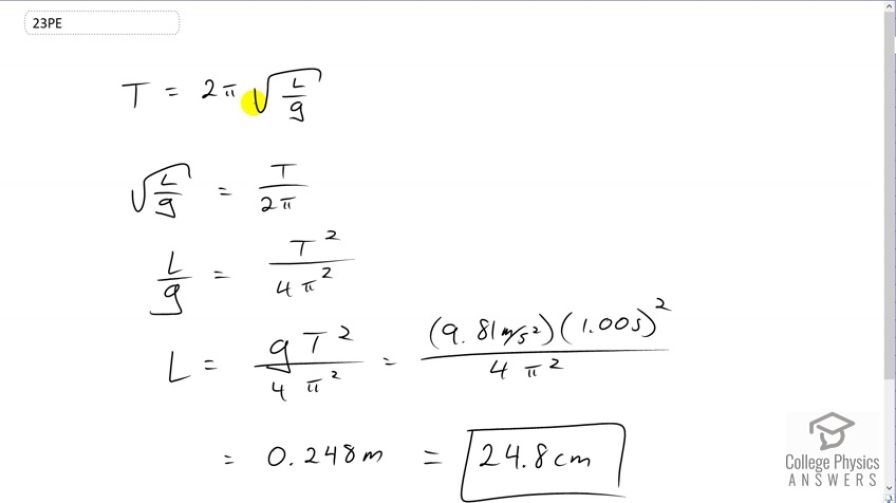 23PE
T = 2π √(L/g)
√(L/g) = T/2π
L/g = T²/4π²
L = gT²/4π² = (9.81 m/s²)(1.00 s)²/4π²
= 0.248 m = 24.8 cm
College Physics
ANSWERS